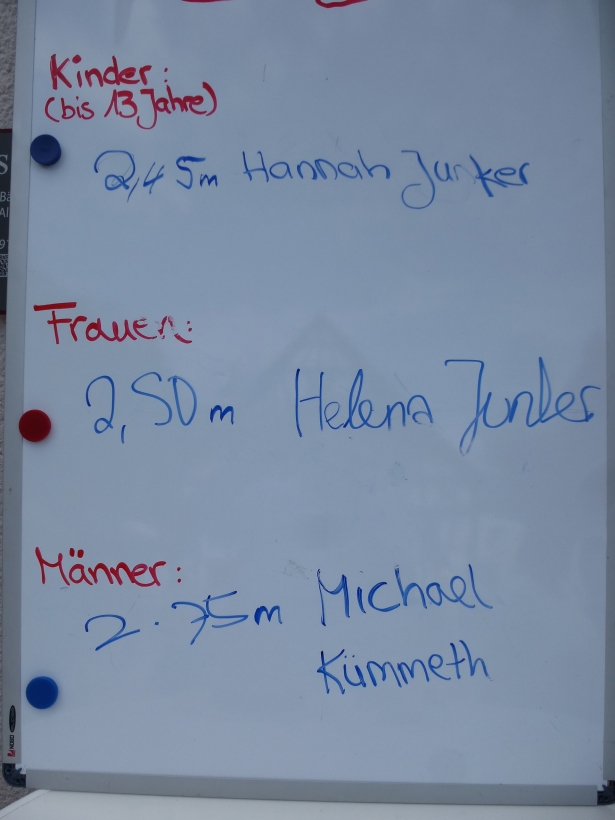 Kinder:
(bis 13 Jahre)
2,45m Hannah Junker
Frauen:
2,50m Helena Junker
Männer:
2.75m Michael
Kümmeth